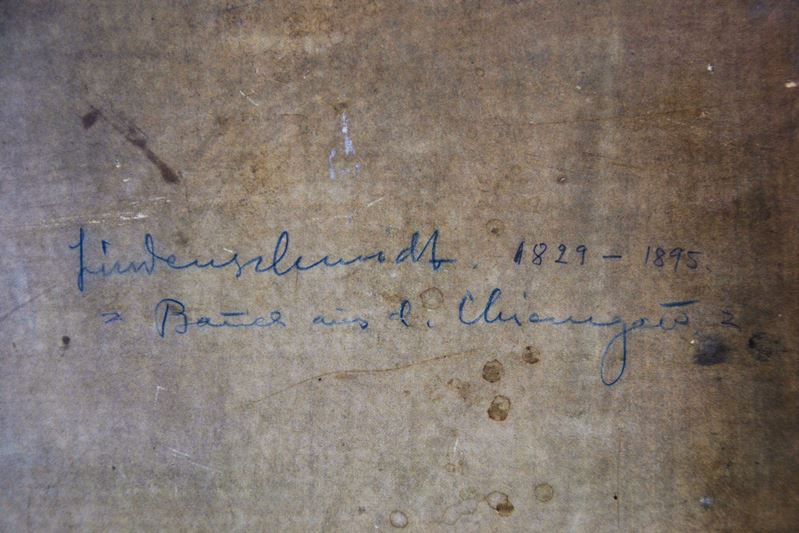 Lindenschmidt. 1829 – 1895.
" Bauer aus d. Chiemgau. "